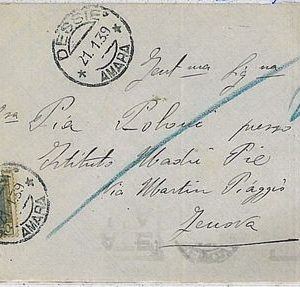 DESSIÈ
21.1.39
AMARA
Gent.ma Sg.na
Pia presso
Istituto Madri Pie
Via Martin Piaggio
Genova
39
AMARA